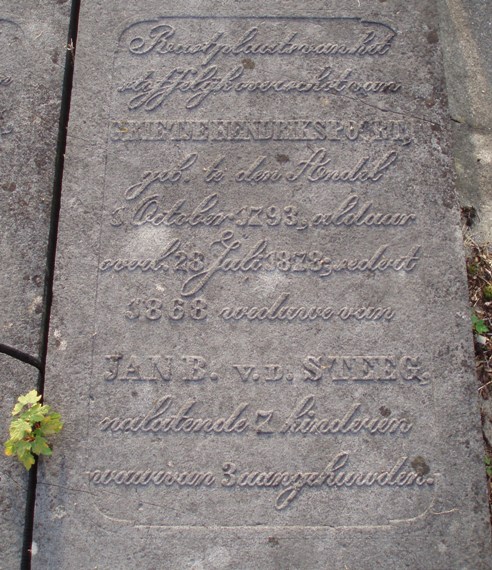 Rustplaats van het
stoffelijk overschot van
GRIETJE HENDRIKS POORT,
geb. te den Andel
8 October 1793, aldaar
overl. 28 Juli 1878, sedert
1868 weduwe van
JAN B. v.d. STEEG,
nalatende 7 kinderen
waarvan 3 aangehuwden.